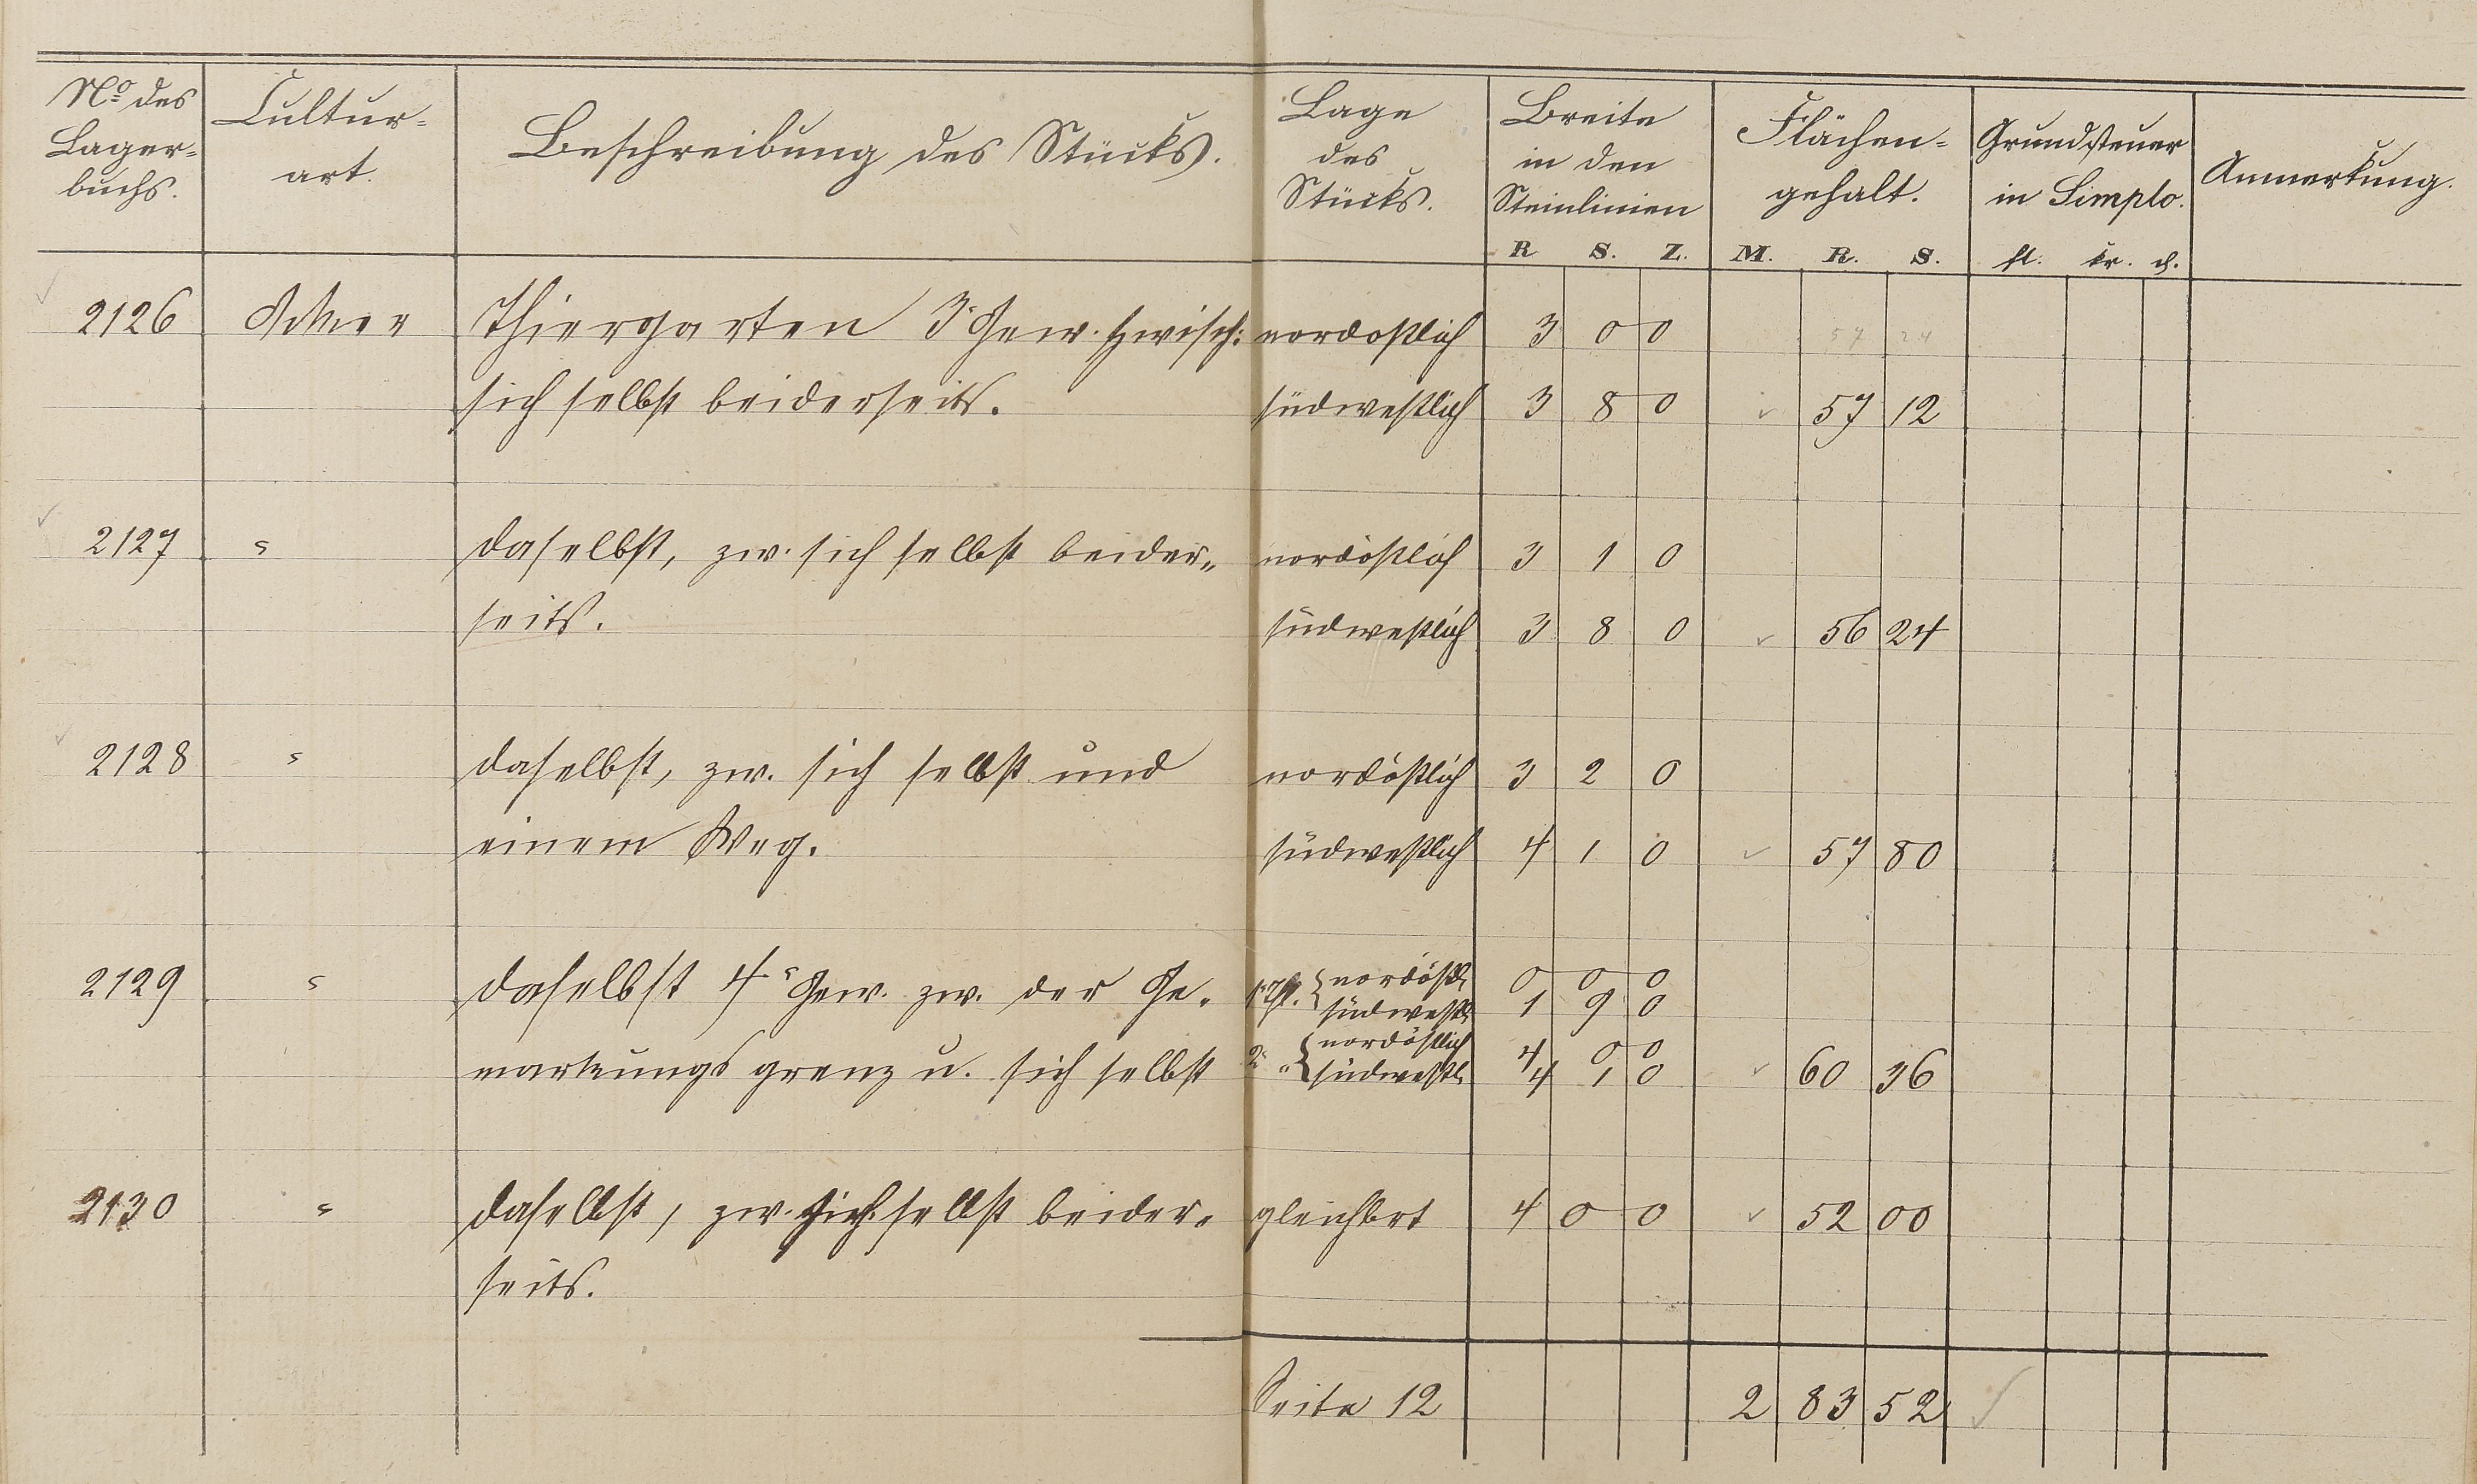 No des Lager=buchs. Cultur=art. Beschreibung des Stücks. Lage des Stücks. Breite in den Steinlinien Flächen=gehalt. Grundsteuer in Simplo. Anmerkung.
R S. Z. M. R. S. fl. kr. d.
2126 Acker Thiergarten 3r Gew. zwisch: nordöstlich 3 0 0 57 24
sich selbst beiderseits. südwestlich 3 8 0 57 12
2127 " daselbst, zw. sich selbst beider„ nordöstlich 3 1 0
seits. südwestlich 3 8 0 56 24
2128 " daselbst, zw. sich selbst und nordöstlich 3 2 0
einem Weg. südwestlich 4 1 0 57 80
2129 " daselbst 4r Gew. zw. der Ge„ 1r Thl. nordöstl. 0 0 0
südwestl. 1 9 0
markungsgrenz u. sich selbst 2r " nordöstlich 4 0 0
südwestl. 4 1 0 60 36
2130 " daselbst, zw. sich selbst beider„ gleichbrt 4 0 0 52 00
seits.
Seite 12 2 83 52